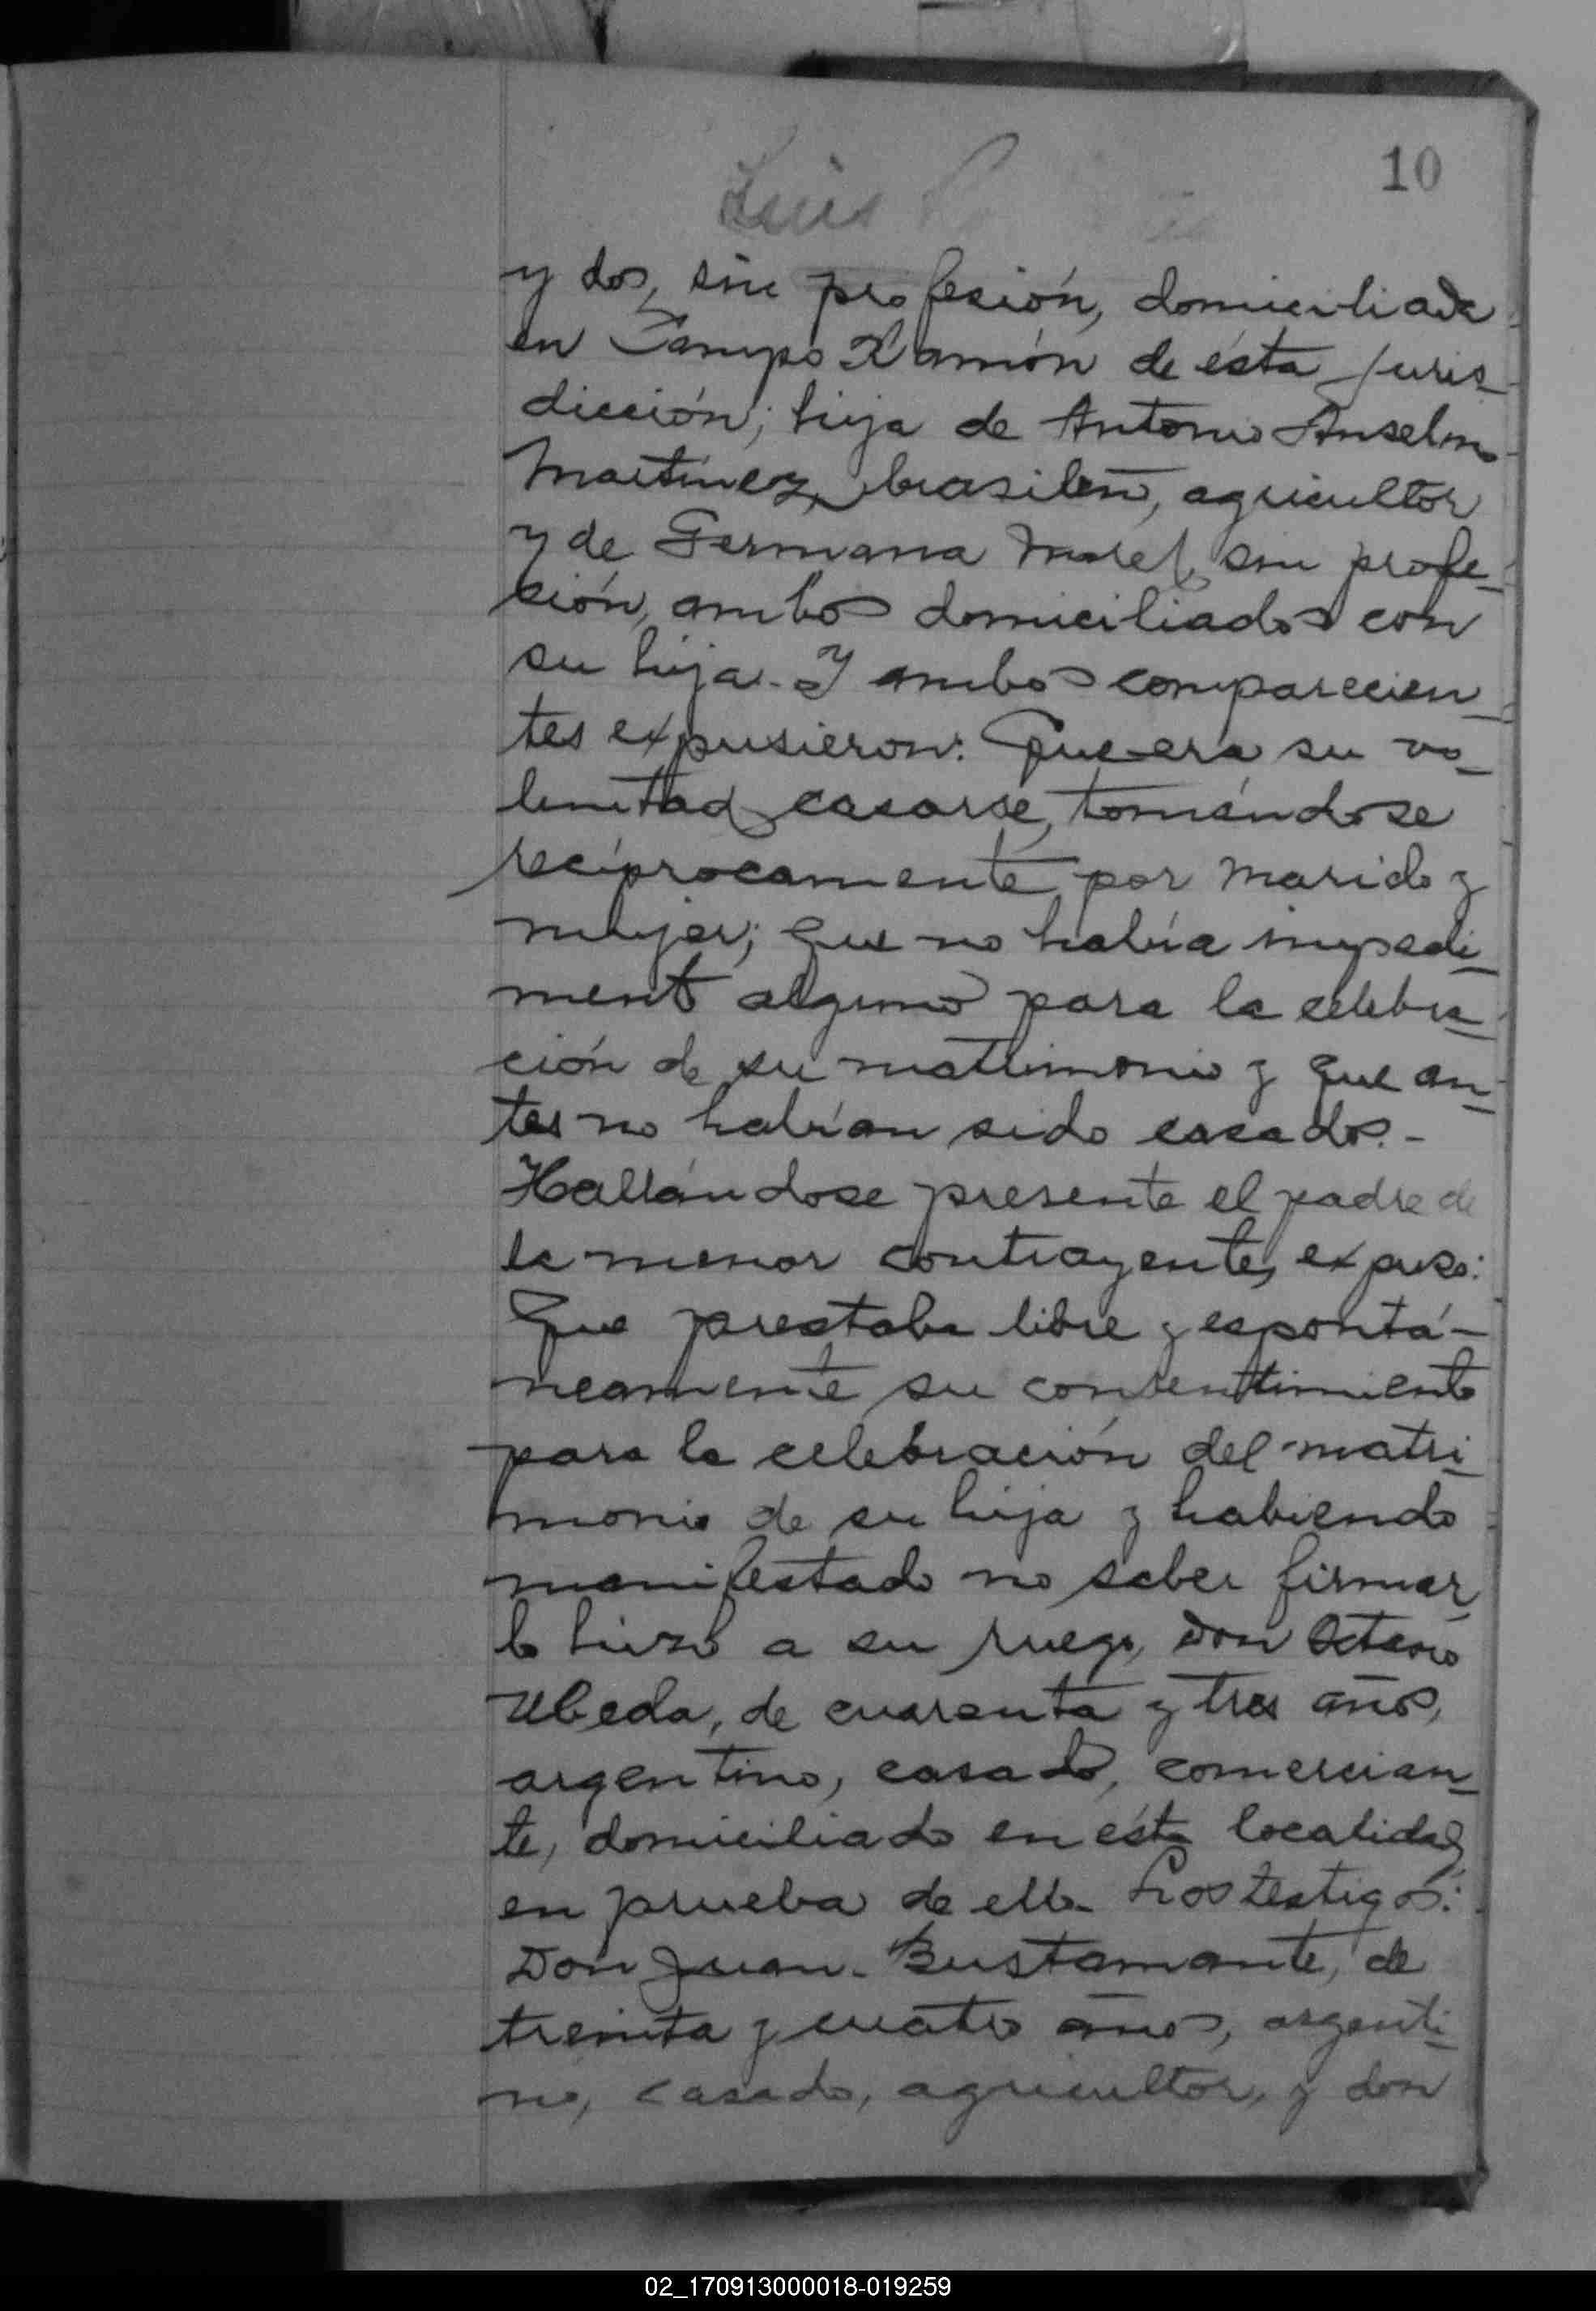 10
Luis
y dos, sin profesión, domiciliada
en Campo Ramón de ésta juris-
dicción; hija de Antonio Anselmo
Martínez, brasileño, agricultor
y de Germana Morel, sin profe-
sión, ambos domiciliados con
su hija.- Y ambos comparecien-
tes expusieron: Que era su vo-
luntad casarse, tomándose
recíprocamente por marido y
mujer; que no había impedi-
mento alguno para la celebra-
ción de su matrimonio y que an-
tes no habían sido casados.-
Hallándose presente el padre de
la menor contrayente, expuso:
Que prestaba libre y espontá-
neamente su consentimiento
para la celebración del matri-
monio de su hija y habiendo
manifestado no saber firmar,
lo hizo a su ruego, don Octavio
Ubeda, de cuarenta y tres años,
argentino, casado, comercian-
te, domiciliado en ésta localidad
en prueba de ello. Los testigos:
Don Juan Bustamante, de
treinta y cuatro años, argenti-
no, casado, agricultor, y don
02_170913000018-019259